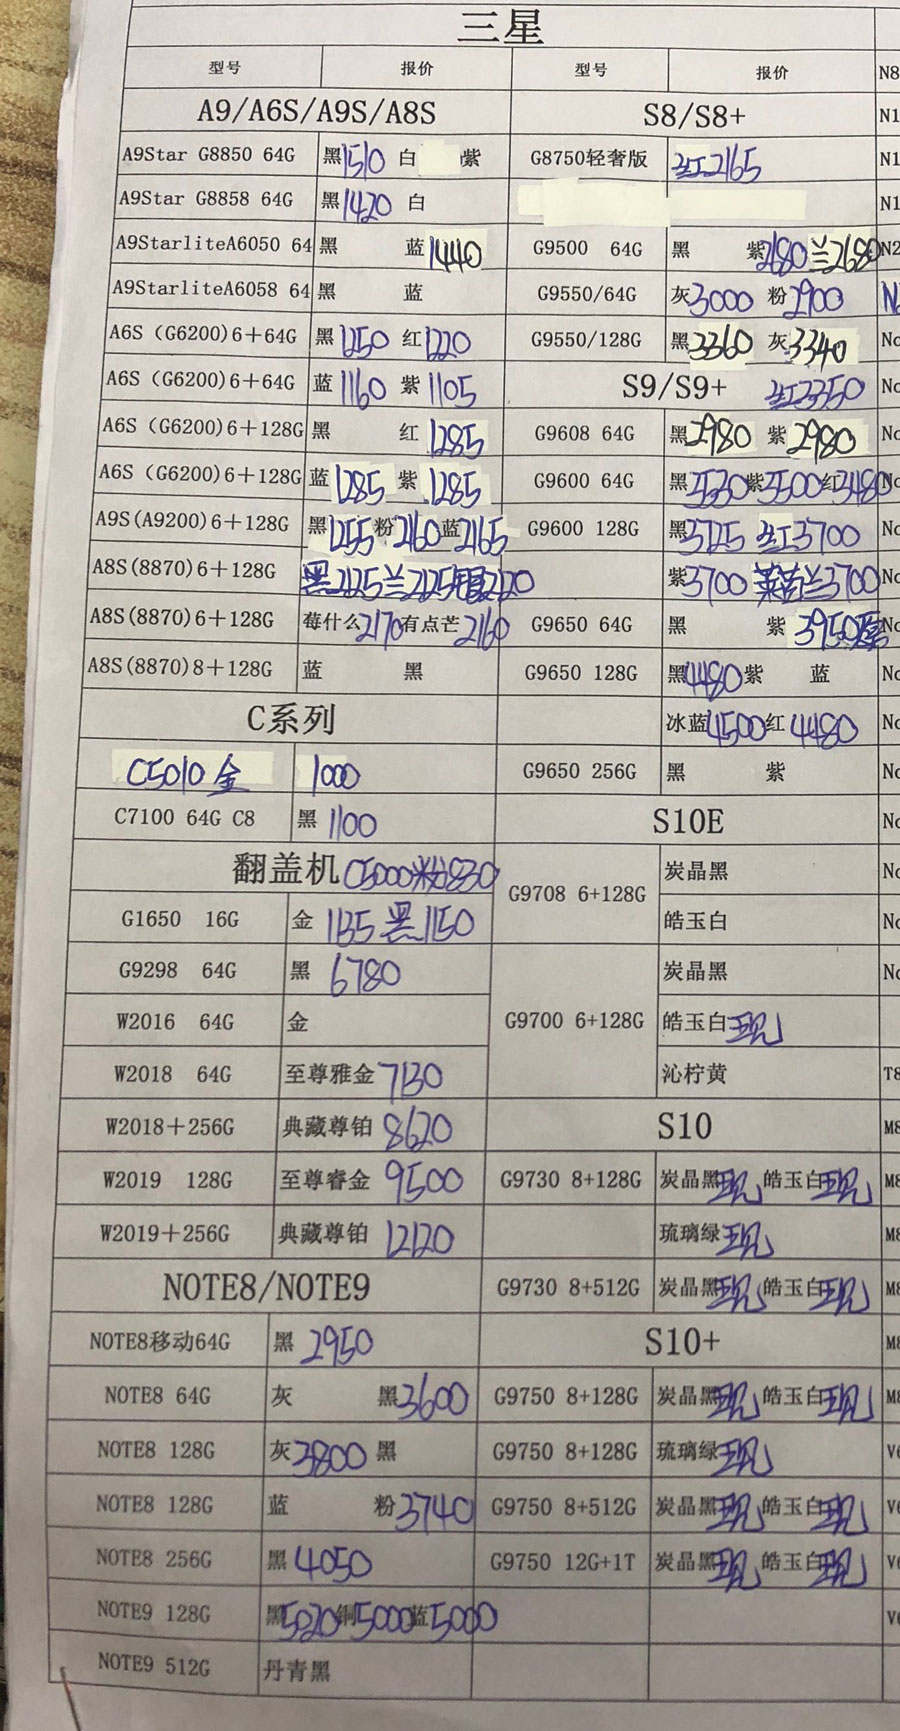 三星
型号 报价 型号 报价 N8
A9/A6S/A9S/A8S S8/S8+ N1
A9Star G8850 64G 黑1510 白 紫 G8750轻奢版 红2165 N1
A9Star G8858 64G 黑1420 白 N1
A9StarliteA6050 64 黑 蓝1440 G9500 64G 黑 紫2680兰2680 N2
A9StarliteA6058 64 黑 蓝 G9550/64G 灰3000 粉2900
A6S (G6200)6+64G 黑1250 红1220 G9550/128G 黑3360 灰3340 No
A6S (G6200)6+64G 蓝1160 紫1105 S9/S9+ 红3350 No
A6S (G6200)6+128G 黑 红1285 G9608 64G 黑2980 紫2980 No
A6S (G6200)6+128G 蓝1285 紫1285 G9600 64G 黑3530紫3500红3480 No
A9S(A9200)6+128G 黑 粉2160蓝2165 G9600 128G 黑3725 红3700 No
A8S(8870)6+128G 黑2125兰2125 2120 紫3700 莱茵兰3700 No
A8S(8870)6+128G 莓什么2170有点芒2160 G9650 64G 黑 紫3950 No
A8S(8870)8+128G 蓝 黑 G9650 128G 黑4480紫 蓝 No
C系列 冰蓝4500红4480 No
C5010 金 1000 G9650 256G 黑 紫 No
C7100 64G C8 黑1100 S10E No
翻盖机 C5000粉830 G9708 6+128G 炭晶黑 No
G1650 16G 金1135 黑1150 皓玉白 No
G9298 64G 黑 6780 炭晶黑 No
W2016 64G 金 G9700 6+128G 皓玉白现
W2018 64G 至尊雅金7130 沁柠黄 T8
W2018+256G 典藏尊铂 8620 S10 M8
W2019 128G 至尊睿金 9500 G9730 8+128G 炭晶黑现 皓玉白现 M8
W2019+256G 典藏尊铂 12120 琉璃绿现 M8
NOTE8/NOTE9 G9730 8+512G 炭晶黑现 皓玉白现 M8
NOTE8移动64G 黑 2950 S10+ M8
NOTE8 64G 灰 黑3600 G9750 8+128G 炭晶黑现 皓玉白现 M8
NOTE8 128G 灰3800 黑 G9750 8+128G 琉璃绿现 V6
NOTE8 128G 蓝 粉3740 G9750 8+512G 炭晶黑现 皓玉白现 V6
NOTE8 256G 黑4050 G9750 12G+1T 炭晶黑现 皓玉白现 V6
NOTE9 128G 黑5020铜5000蓝5000 V6
NOTE9 512G 丹青黑